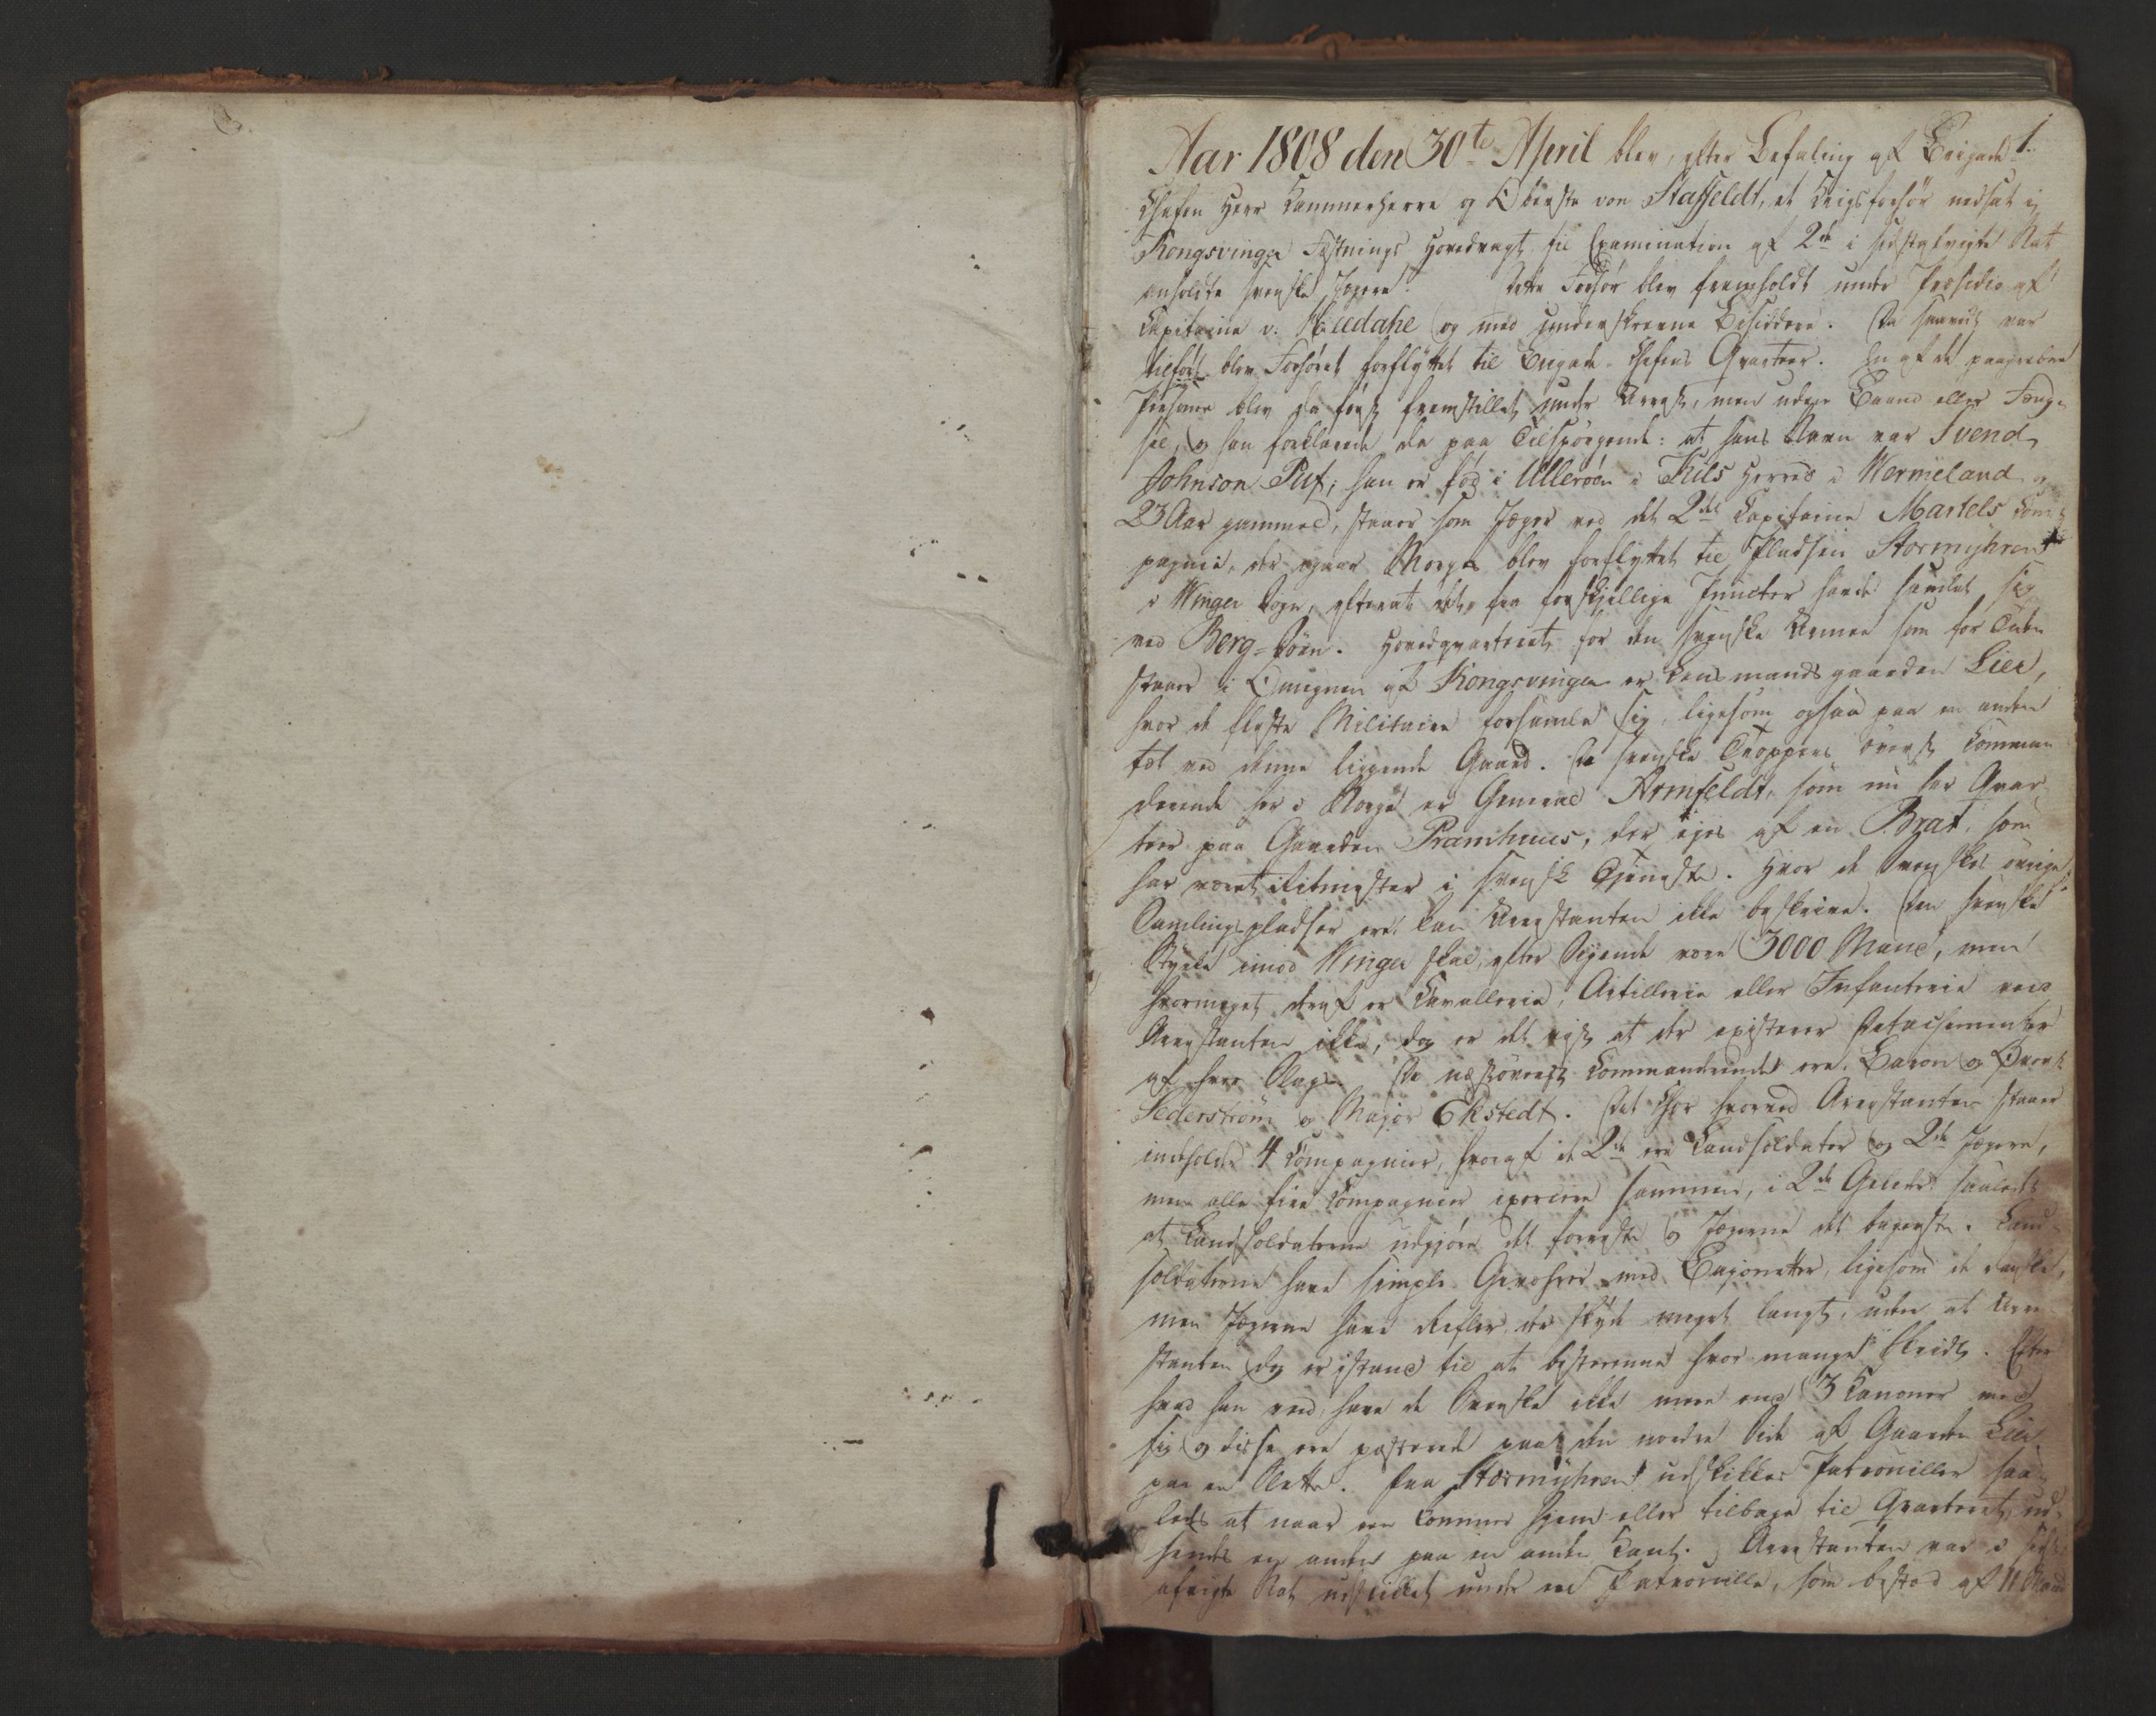 1.
Aar 1808 den 30te April blev, efter Befaling af Brigade
Chefen Herr Kammerherre og Oberste von Staffeldt, et Krigsforhør nedsat i
Kongsvinger Fæstnings Hovedvagt til Examination af 2de i sidstafvigte Nat
anholdte svenske Jægere. Dette Forhør blev fremholdt under Præsidio af
Capitaine v. Heedahe og med underskrevne Bisiddere. Da saavidt var
tilført blev Forhøret forflyttet til Brigade-Chefens Qvarteer. En af de paagrebne
Personer blev da først fremstillet under Arrest, men uden Baand eller Fæng-
sel, og han forklarede da paa Tilspørgende: at hans Navn var Svend
Johnson Puf; han er fød i Ullerøen i Kils Herred i Wermeland og
23 Aar gammel, staaer som Jæger ved det 2det Capitaine Martels Com-
pagnie, der igaar Morges blev forflyttet til Pladsen Stormyhren
i Winger Sogn, efterat det fra forskjellige Puncter havde samlet sig
ved Berg-Søen. Hovedqvarteret for den svenske Armee som for Tiden
staaer i Omegnen af Kongsvinger er Lensmandsgaarden Lier,
hvor de fleste Militaire forsamle sig, ligesom ogsaa paa en anden
tæt ved denne liggende Gaard. De svenske Troppers øverst Comman-
derende her i Norge er General Armfeldt, som nu har Qvar-
teer paa Gaarden Pramhuus, der ejes af en Brat, som
har været Ritmester i svensk Tjeneste. Hvor de Svenskes øvrige
Samlingspladser ere kan Arrestanten ikke beskrive. Den svenske
Styrke imod Winger skal, efter Sigende være 3000 Mand, men
hvormeget deraf er Cavallerie, Artillerie eller Infanterie veed
Arrestanten ikke, dog er det vist at der existerer Detachementer
af hver Slags. De næstøverst Commanderende ere, Baron og Øverst
Sederstrøm og Major Ekstedt. Det Chor hvorved Arrestanten staaer
indeholder 4 Compagnier, hvoraf de 2de ere Landsoldater og 2de Jægere,
men alle fire Compagnier exercere sammen, i 2de Geleder saaledes
at Landsoldaterne udgjøre det forreste og Jægerne det bagerste. Land-
soldaterne have simple Geværer med Bajonetter, ligesom de danske,
men Jægerne have Rifler, der skyde meget langt, uden at Arre-
stanten dog er istand til at bestemme hvor mange Skridt. Efter
hvad han veed, have de Svenske ikke mere end 3 Kanoner med
sig og disse ere posterede paa den nordre Side af Gaarden Lier
paa en Slette. Fra Stormyhren udskikkes Patrouiller saa-
ledes at naar een kommer hjem eller tilbage til Qvarteret, ud-
sendes en anden paa en anden Kant. Arrestanten var i sidst-
afvigte Nat udskikket under en Patrouille, som bestod af 11 Mand